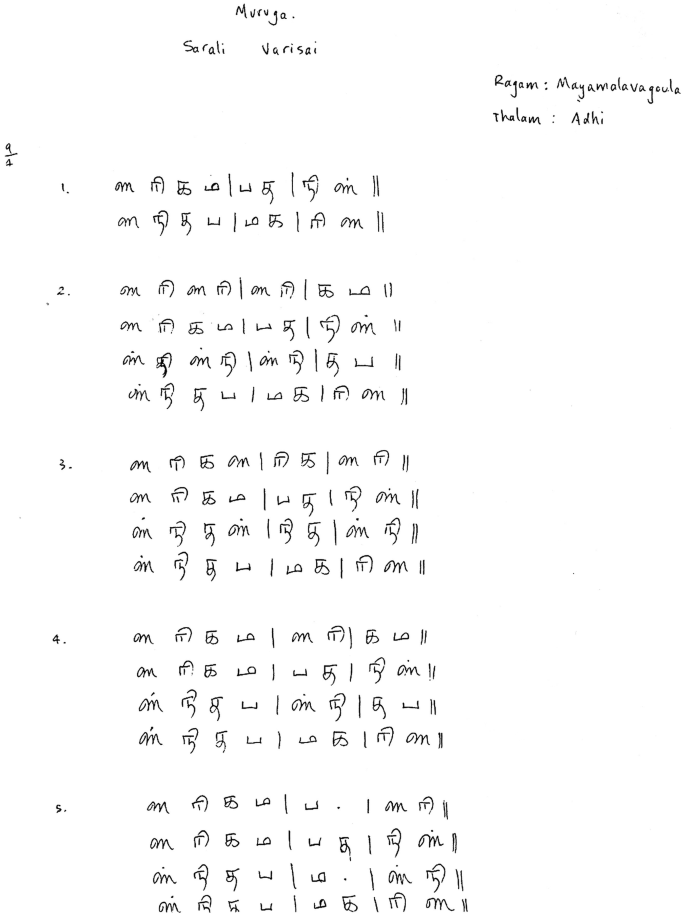 Muruga.
Sarali Varisai
Ragam: Mayamalavagoula
Thalam: Adhi
9/4
1. ஸ ரி க ம | ப த | நி ஸ் ||
ஸ நி த ப | ம க | ரி ஸ ||
2. ஸ ரி ஸ ரி | ஸ ரி | க ம ||
ஸ ரி க ம | ப த | நி ஸ் ||
ஸ் நி ஸ் நி | ஸ் நி | த ப ||
ஸ் நி த ப | ம க | ரி ஸ ||
3. ஸ ரி க ஸ | ரி க | ஸ ரி ||
ஸ ரி க ம | ப த | நி ஸ் ||
ஸ் நி த ஸ் | நி த | ஸ் நி ||
ஸ் நி த ப | ம க | ரி ஸ ||
4. ஸ ரி க ம | ஸ ரி | க ம ||
ஸ ரி க ம | ப த | நி ஸ் ||
ஸ் நி த ப | ஸ் நி | த ப ||
ஸ் நி த ப | ம க | ரி ஸ ||
5. ஸ ரி க ம | ப . | ஸ ரி ||
ஸ ரி க ம | ப த | நி ஸ் ||
ஸ் நி த ப | ம . | ஸ் நி ||
ஸ் நி த ப | ம க | ரி ஸ ||